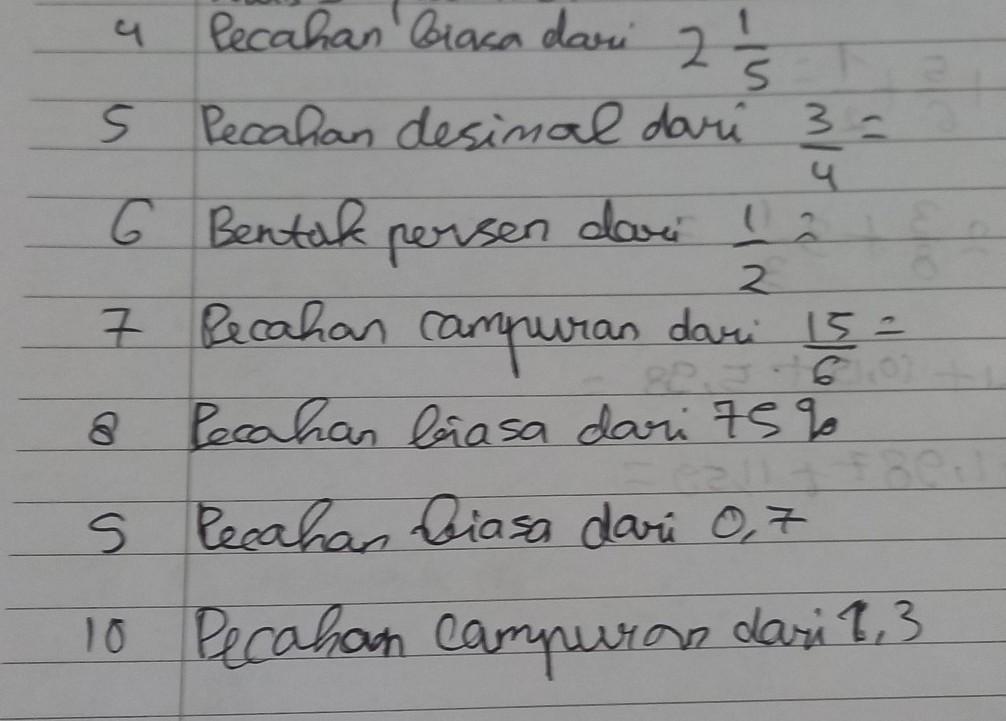 4 Pecahan biasa dari 2 1/5
5 Pecahan desimal dari 3/4 =
6 Bentak persen dari 1/2 =
7 Pecahan campuran dari 15/6 =
8 Pecahan biasa dari 75%
9 Pecahan biasa dari 0,7
10 Pecahan campuran dari 1,3